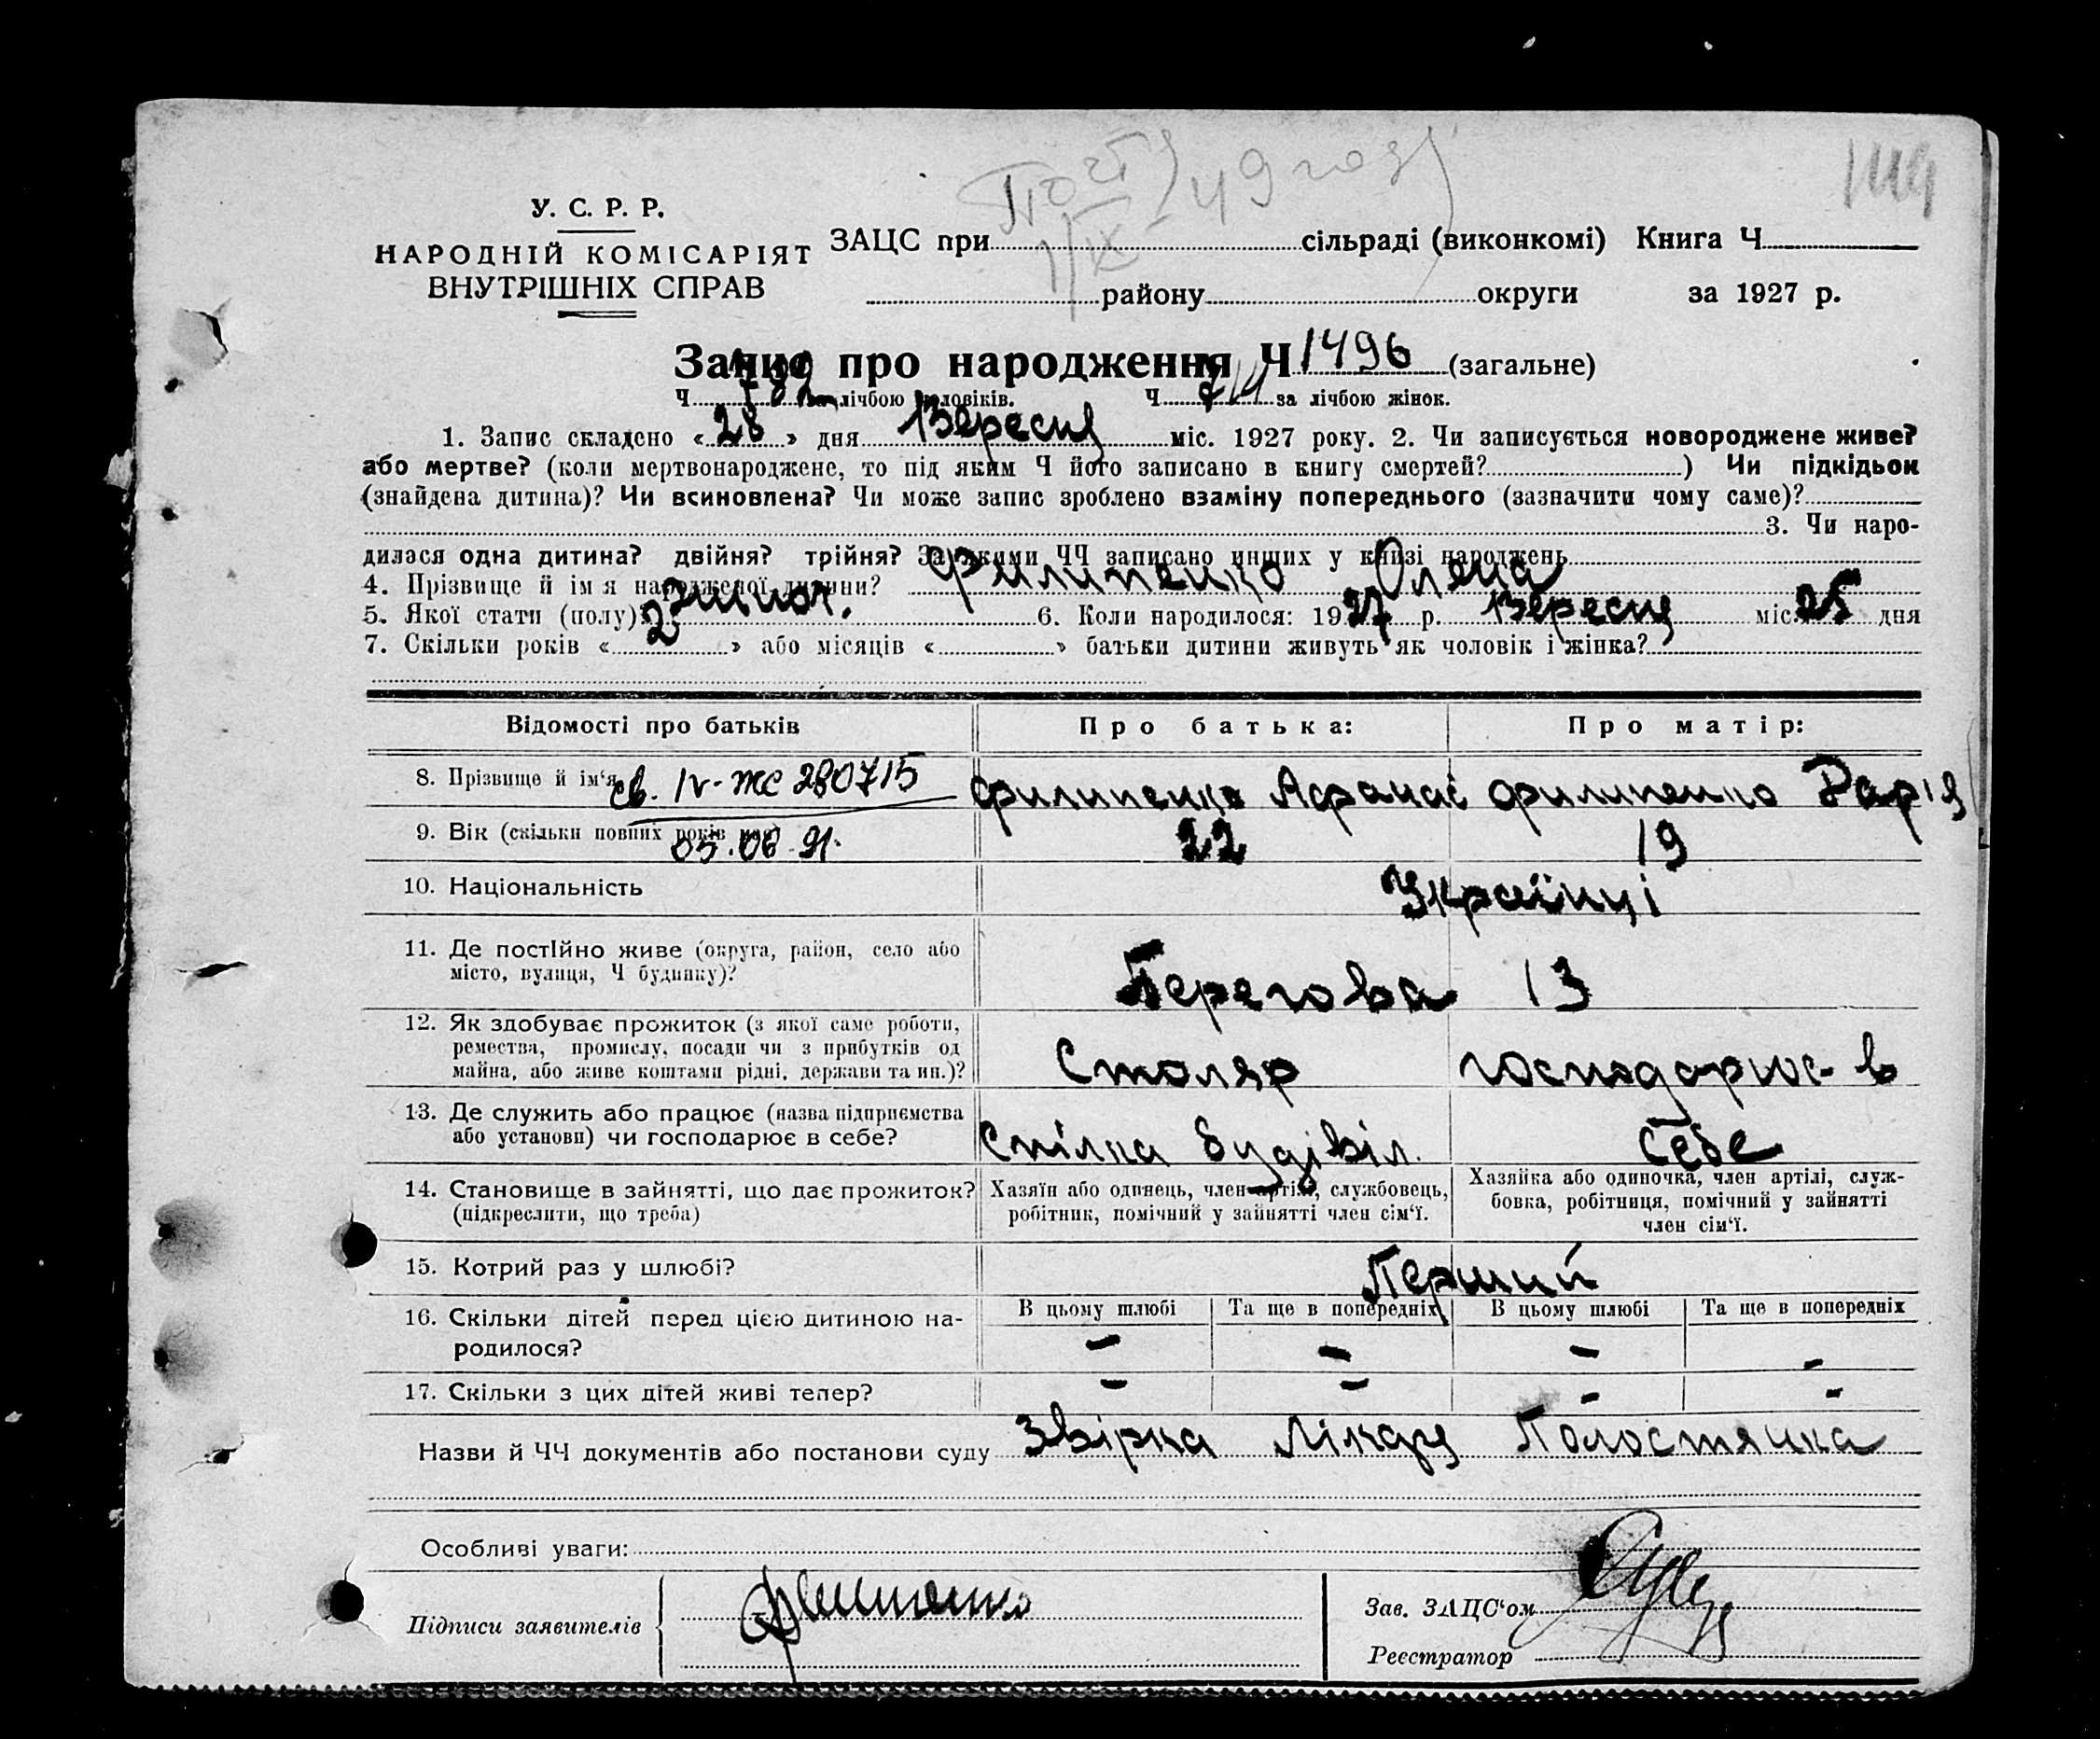 У. С. Р. Р.
НАРОДНІЙ КОМІСАРІЯТ
ВНУТРІШНІХ СПРАВ
ЗАЦС при сільраді (виконкомі) Книга Ч
району округи за 1927 р.
Запис про народження Ч 1496 (загальне)
Ч 782 за лічбою чоловіків. Ч 714 за лічбою жінок.
1. Запис складено « 28 » дня Вересня міс. 1927 року. 2. Чи записується новороджене живе?
або мертве? (коли мертвонароджене, то під яким Ч його записано в книгу смертей? ) Чи підкідьок
(знайдена дитина)? Чи всиновлена? Чи може запис зроблено взаміну попереднього (зазначити чому саме)?
3. Чи наро-
дилася одна дитина? двійня? трійня? За якими ЧЧ записано инших у книзі народжень
4. Прізвище й ім'я народженої дитини? Филипенко Олена
5. Якої стати (полу)? жіноч. 6. Коли народилося: 1927 р. Вересня міс. 25 дня
7. Скільки років « 2 » або місяців « » батьки дитини живуть як чоловік і жінка?
Відомості про батьків Про батька: Про матір:
8. Прізвище й ім'я св. IV-ЖС 280715 Филипенко Афанас Филипенко Дарія
9. Вік (скільки повних років) 05.06.91. 22 19
10. Національність Українці
11. Де постійно живе (округа, район, село або
місто, вулиця, Ч будинку)? Берегова 13
12. Як здобуває прожиток (з якої саме роботи,
ремества, промислу, посади чи з прибутків од
майна, або живе коштами рідні, держави та ин.)? Столяр господарює в
13. Де служить або працює (назва підприємства
або установи) чи господарює в себе? Спілка будівіл. себе
14. Становище в зайнятті, що дає прожиток?
(підкреслити, що треба)
Хазяїн або одинець, член артілі, службовець,
робітник, помічний у зайнятті член сім'ї.
Хазяйка або одиночка, член артілі, служ-
бовка, робітниця, помічний у зайнятті
член сім'ї.
15. Котрий раз у шлюбі? Перший
16. Скільки дітей перед цією дитиною на-
родилося?
В цьому шлюбі Та ще в попередніх В цьому шлюбі Та ще в попередніх
– – – –
17. Скільки з цих дітей живі тепер? – – – –
Назви й ЧЧ документів або постанови суду Звірка Лікаря Полостянка
Особливі уваги:
Підписи заявителів Филипенко
Зав. ЗАЦС'ом
Реєстратор